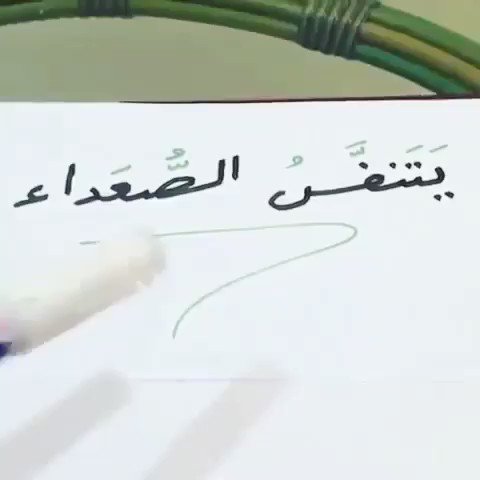 يَتَنفَّسُ الصُّعَداء